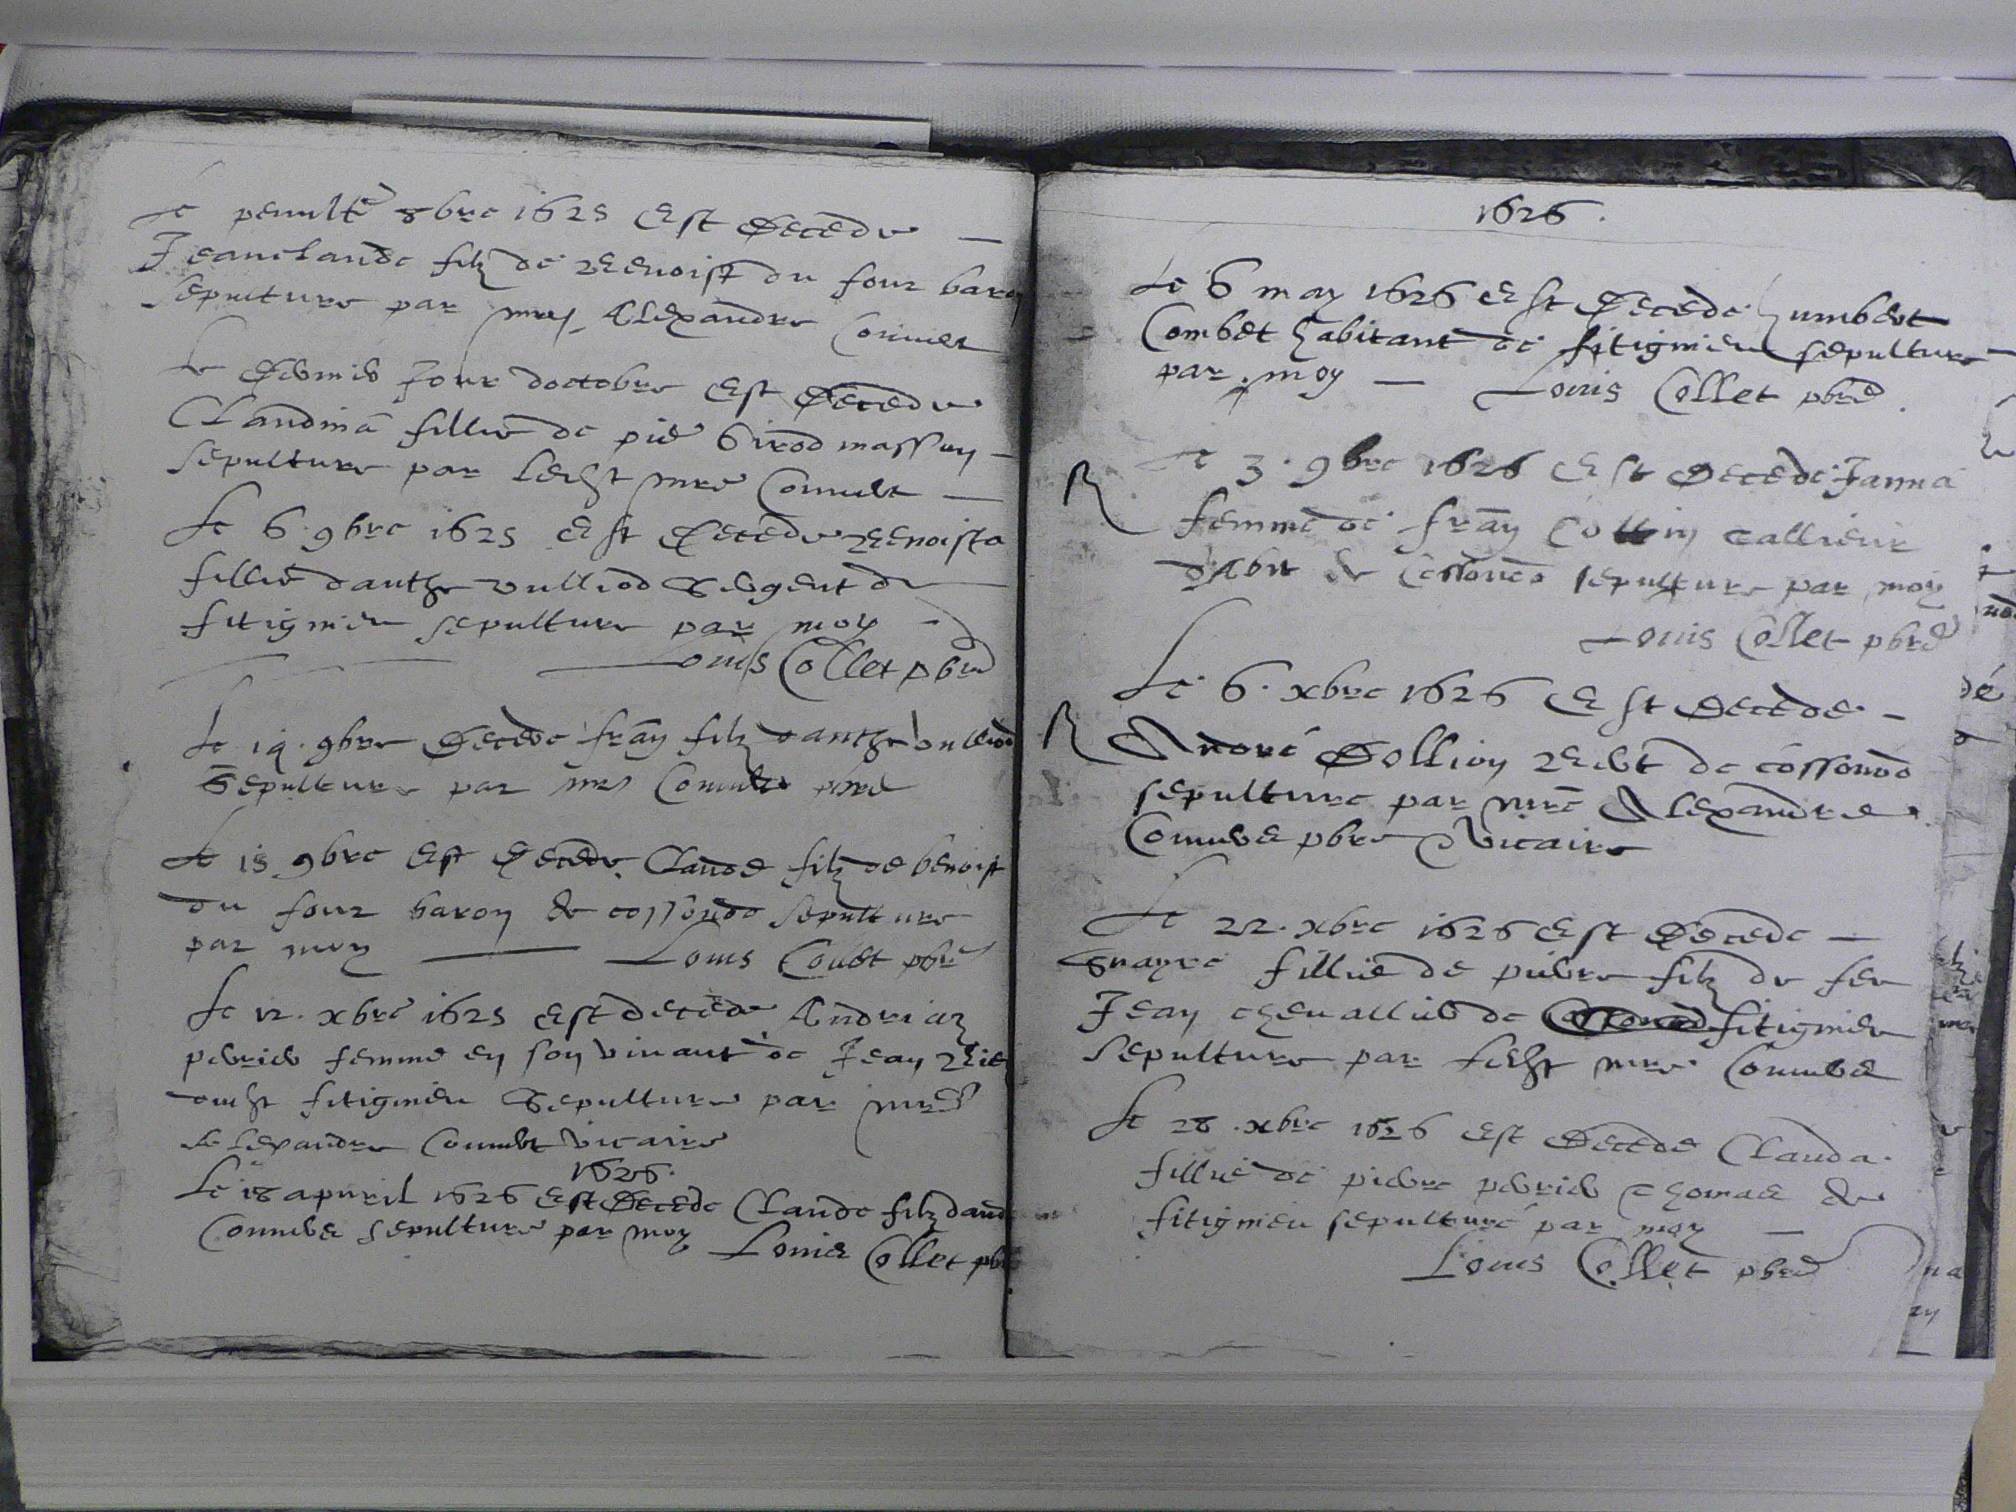 Le penulte 8bre 1625 est decede
Jeanclaude filz de Benoist du four baron
sepulture par mre Alexandre Connet
Le dernier Jour doctobre est decede
Claudina fillie de pierre Girod masson
sepulture par ledst mre Connet
Le 6 9bre 1625 est decede Benoista
fillie danthe vulliod sergent de
fitignieu sepulture par moy
Louis Collet pbre
Le 14 9bre decede fran filz danthe vulliod
Sepulture par mre Connet pbre
Le 15 9bre est decede Claude filz de benoist
du four baron de cossonod sepulture
par moy Louis Collet pbre
Le 12 xbre 1625 est decede
perrier femme en son vivant de Jean
dudst fitignieu Sepulture par mre
Alexandre Connet vicaire
1626.
Le 18 apvril 1626 est decede Claude filz
Connet sepulture par moy Louis Collet pbre
1626.
Le 6 may 1626 est decede humbert
Combet habitant de fitignieu sepulture
par moy Louis Collet pbre
Le 3. 9bre 1626 est decede Janna
femme de fran Collin
sepulture par moy
Louis Collet pbre
Le 6. xbre 1626 est decede
André Dollion de cossonod
sepulture par mre Alexandre
Connet pbre vicaire
Le 22. xbre 1626 est decede
fillie de pierre filz de feu
Jean chevallier de fitignieu
sepulture par ledst mre Connet
Le 28. xbre 1626 est decede Clauda
fillie de pierre perrier de
fitignieu sepulture par moy
Louis Collet pbre